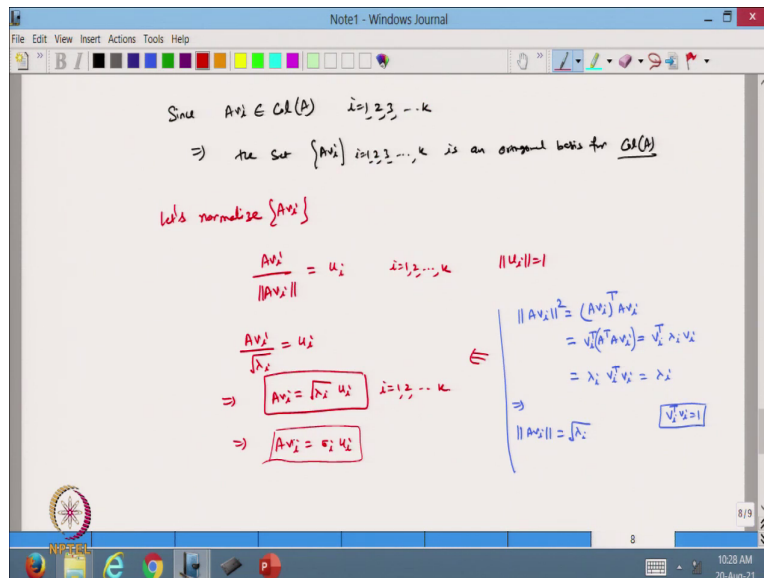 Note1 - Windows Journal
File Edit View Insert Actions Tools Help
Since Avi ∈ Col(A) i=1,2,3,...k
⇒ the set {Avi} i=1,2,3,...,k is an orthogonal basis for Col(A)
Let's normalize {Avi}
Avi / ||Avi|| = ui i=1,2,...,k ||ui||=1
Avi / √λi = ui
⇒ Avi = √λi ui i=1,2,...k
⇒ Avi = σi ui
⇐
||Avi||² = (Avi)ᵀ Avi
= viᵀ(AᵀAvi) = viᵀ λi vi
= λi viᵀ vi = λi
⇒
viᵀvi=1
||Avi|| = √λi
8/9
8
NPTEL
10:28 AM
20-Aug-21